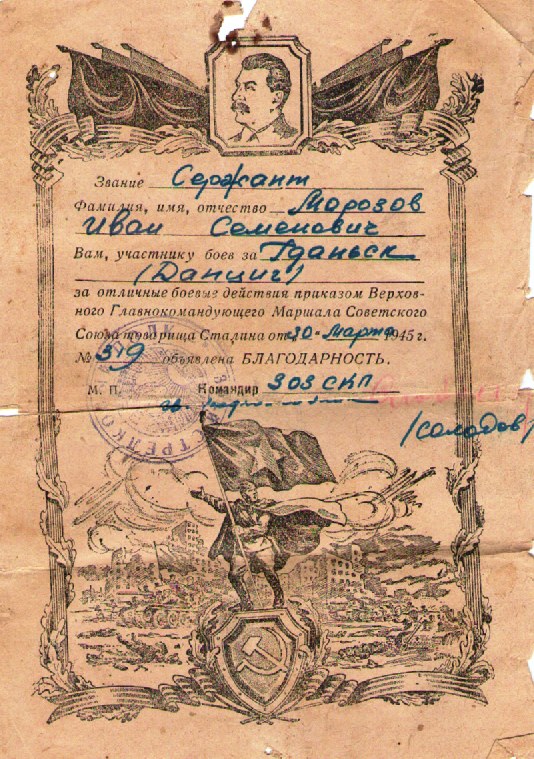 Звание Сержант
Фамилия, имя, отчество Морозов
Иван Семенович
Вам, участнику боев за Гданьск
(Данциг)
за отличные боевые действия приказом Верхов-
ного Главнокомандующего Маршала Советского
Союза товарища Сталина от „30“ Марта 1945 г.
№ 319 объявлена БЛАГОДАРНОСТЬ.
М. П. Командир 303 СКП
гв.
(Солодов)